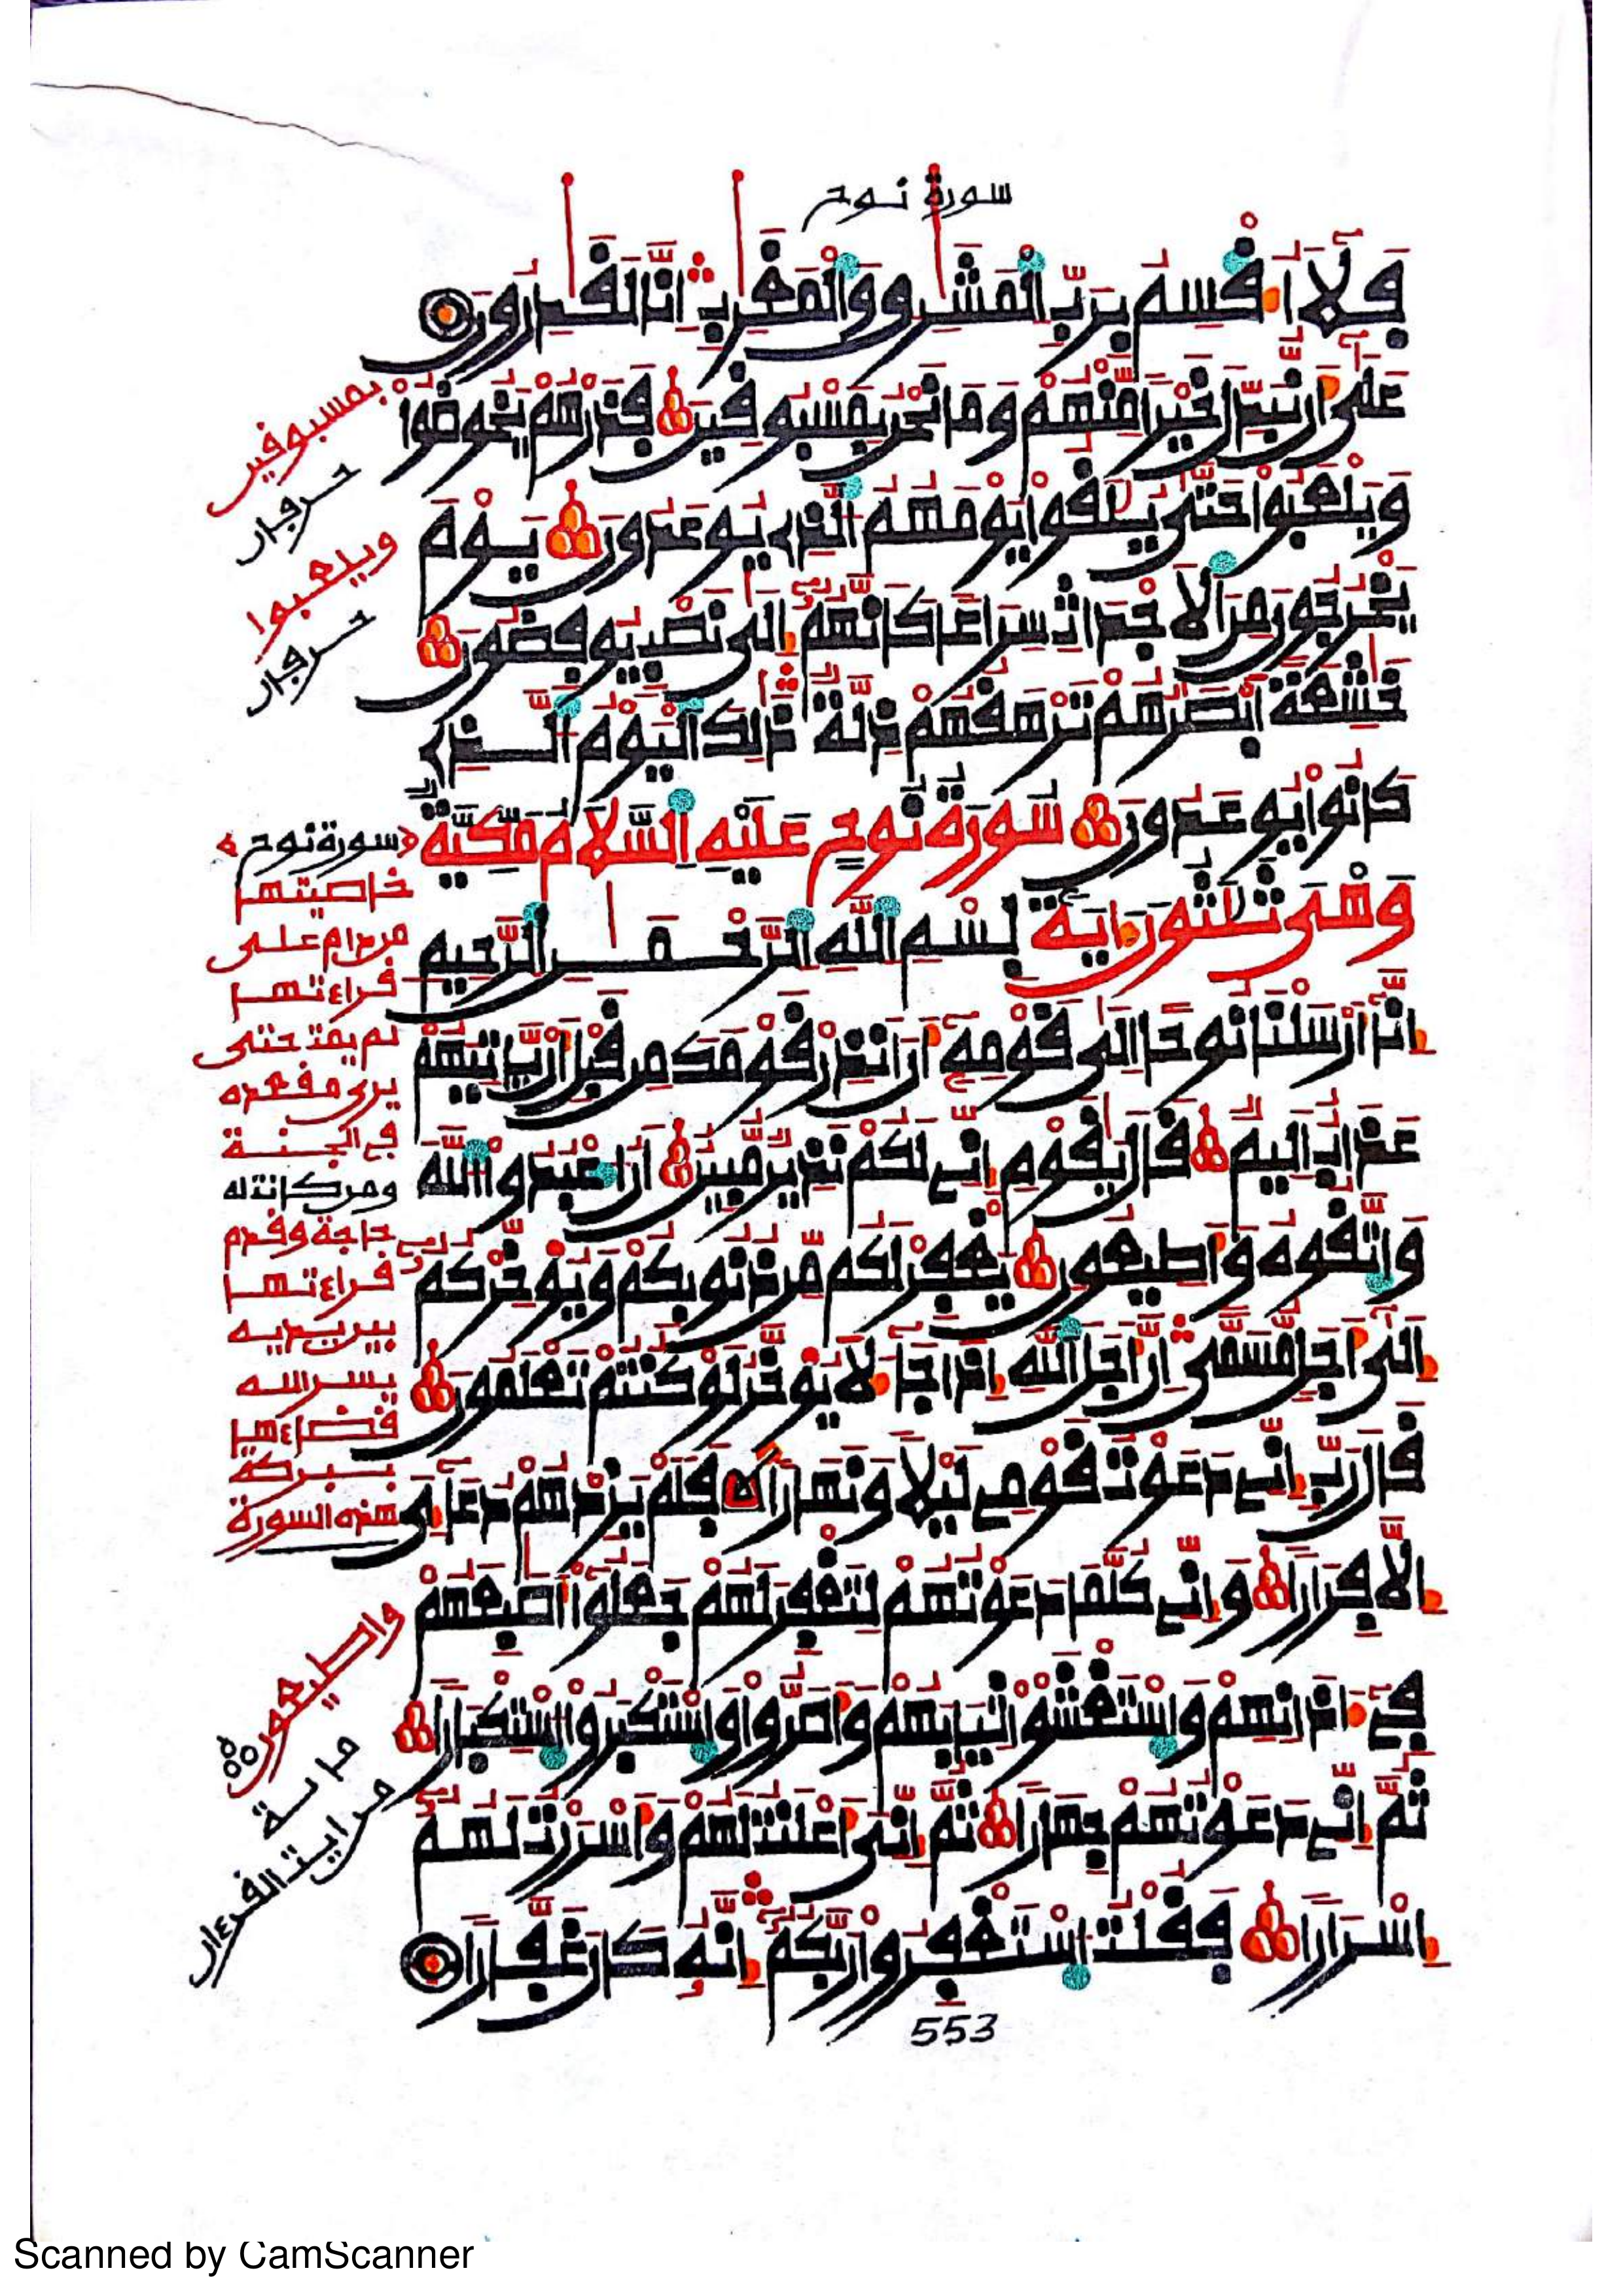 سورة نوح
فَلَآ أُقْسِمُ بِرَبِّ الْمَشَٰرِقِ وَالْمَغَٰرِبِ إِنَّا لَقَٰدِرُونَ
عَلَىٰٓ أَن نُّبَدِّلَ خَيْرًا مِّنْهُمْ وَمَا نَحْنُ بِمَسْبُوقِينَ فَذَرْهُمْ يَخُوضُواْ
وَيَلْعَبُواْ حَتَّىٰ يُلَٰقُواْ يَوْمَهُمُ الَّذِى يُوعَدُونَ يَوْمَ
يَخْرُجُونَ مِنَ الْأَجْدَاثِ سِرَاعًا كَأَنَّهُمُۥٓ إِلَىٰ نَصْبٍ يُوفِضُونَ
خَٰشِعَةً أَبْصَٰرُهُمْ تَرْهَقُهُمْ ذِلَّةٌ ذَٰلِكَ الْيَوْمُ الَّذِى
كَانُواْ يُوعَدُونَ سُورَةُ نُوحٍ عَلَيْهِ السَّلَامُ مَكِّيَّةٌ
وَهْىَ ثَلَٰثُونَ ءَايَةً بِسْمِ اللَّهِ الرَّحْمَٰنِ الرَّحِيمِ
إِنَّآ أَرْسَلْنَا نُوحًا إِلَىٰ قَوْمِهِۦٓ أَنْ أَنذِرْ قَوْمَكَ مِن قَبْلِ أَن يَّاتِيَهُمْ
عَذَابٌ أَلِيمٌ قَالَ يَٰقَوْمِ إِنِّى لَكُمْ نَذِيرٌ مُّبِينٌ أَنُ اعْبُدُواْ اللَّهَ
وَاتَّقُوهُ وَأَطِيعُونِ يَغْفِرْ لَكُم مِّن ذُنُوبِكُمْ وَيُوَخِّرْكُمُۥٓ
إِلَىٰٓ أَجَلٍ مُّسَمًّى إِنَّ أَجَلَ اللَّهِ إِذَا جَآءَ لَا يُوَخَّرُ لَوْ كُنتُمْ تَعْلَمُونَ
قَالَ رَبِّ إِنِّى دَعَوْتُ قَوْمِى لَيْلًا وَنَهَارًا فَلَمْ يَزِدْهُمْ دُعَآءِىَ
إِلَّا فِرَارًا وَإِنِّى كُلَّمَا دَعَوْتُهُمْ لِتَغْفِرَ لَهُمْ جَعَلُوٓاْ أَصَٰبِعَهُمْ
فِىٓ ءَاذَانِهِمْ وَاسْتَغْشَوْاْ ثِيَابَهُمْ وَأَصَرُّواْ وَاسْتَكْبَرُواْ اسْتِكْبَارًا
ثُمَّ إِنِّى دَعَوْتُهُمْ جِهَارًا ثُمَّ إِنِّىَ أَعْلَنتُ لَهُمْ وَأَسْرَرْتُ لَهُمُۥٓ
إِسْرَارًا فَقُلْتُ اسْتَغْفِرُواْ رَبَّكُمُۥٓ إِنَّهُۥ كَانَ غَفَّارًا
553
بمسبوقين
حرفان
ويلعبوا
حرفان
سورة نوح
خاصيتها
من دام على
قراءتها
لم يمت حتى
يرى مقعده
في الجنة
ومن كانت له
حاجة وقدم
قراءتها
بين يديه
يسر الله
قضاءها
ببركة
هذه السورة
وأطيعون
مائة
من ايت القرءان
Scanned by CamScanner